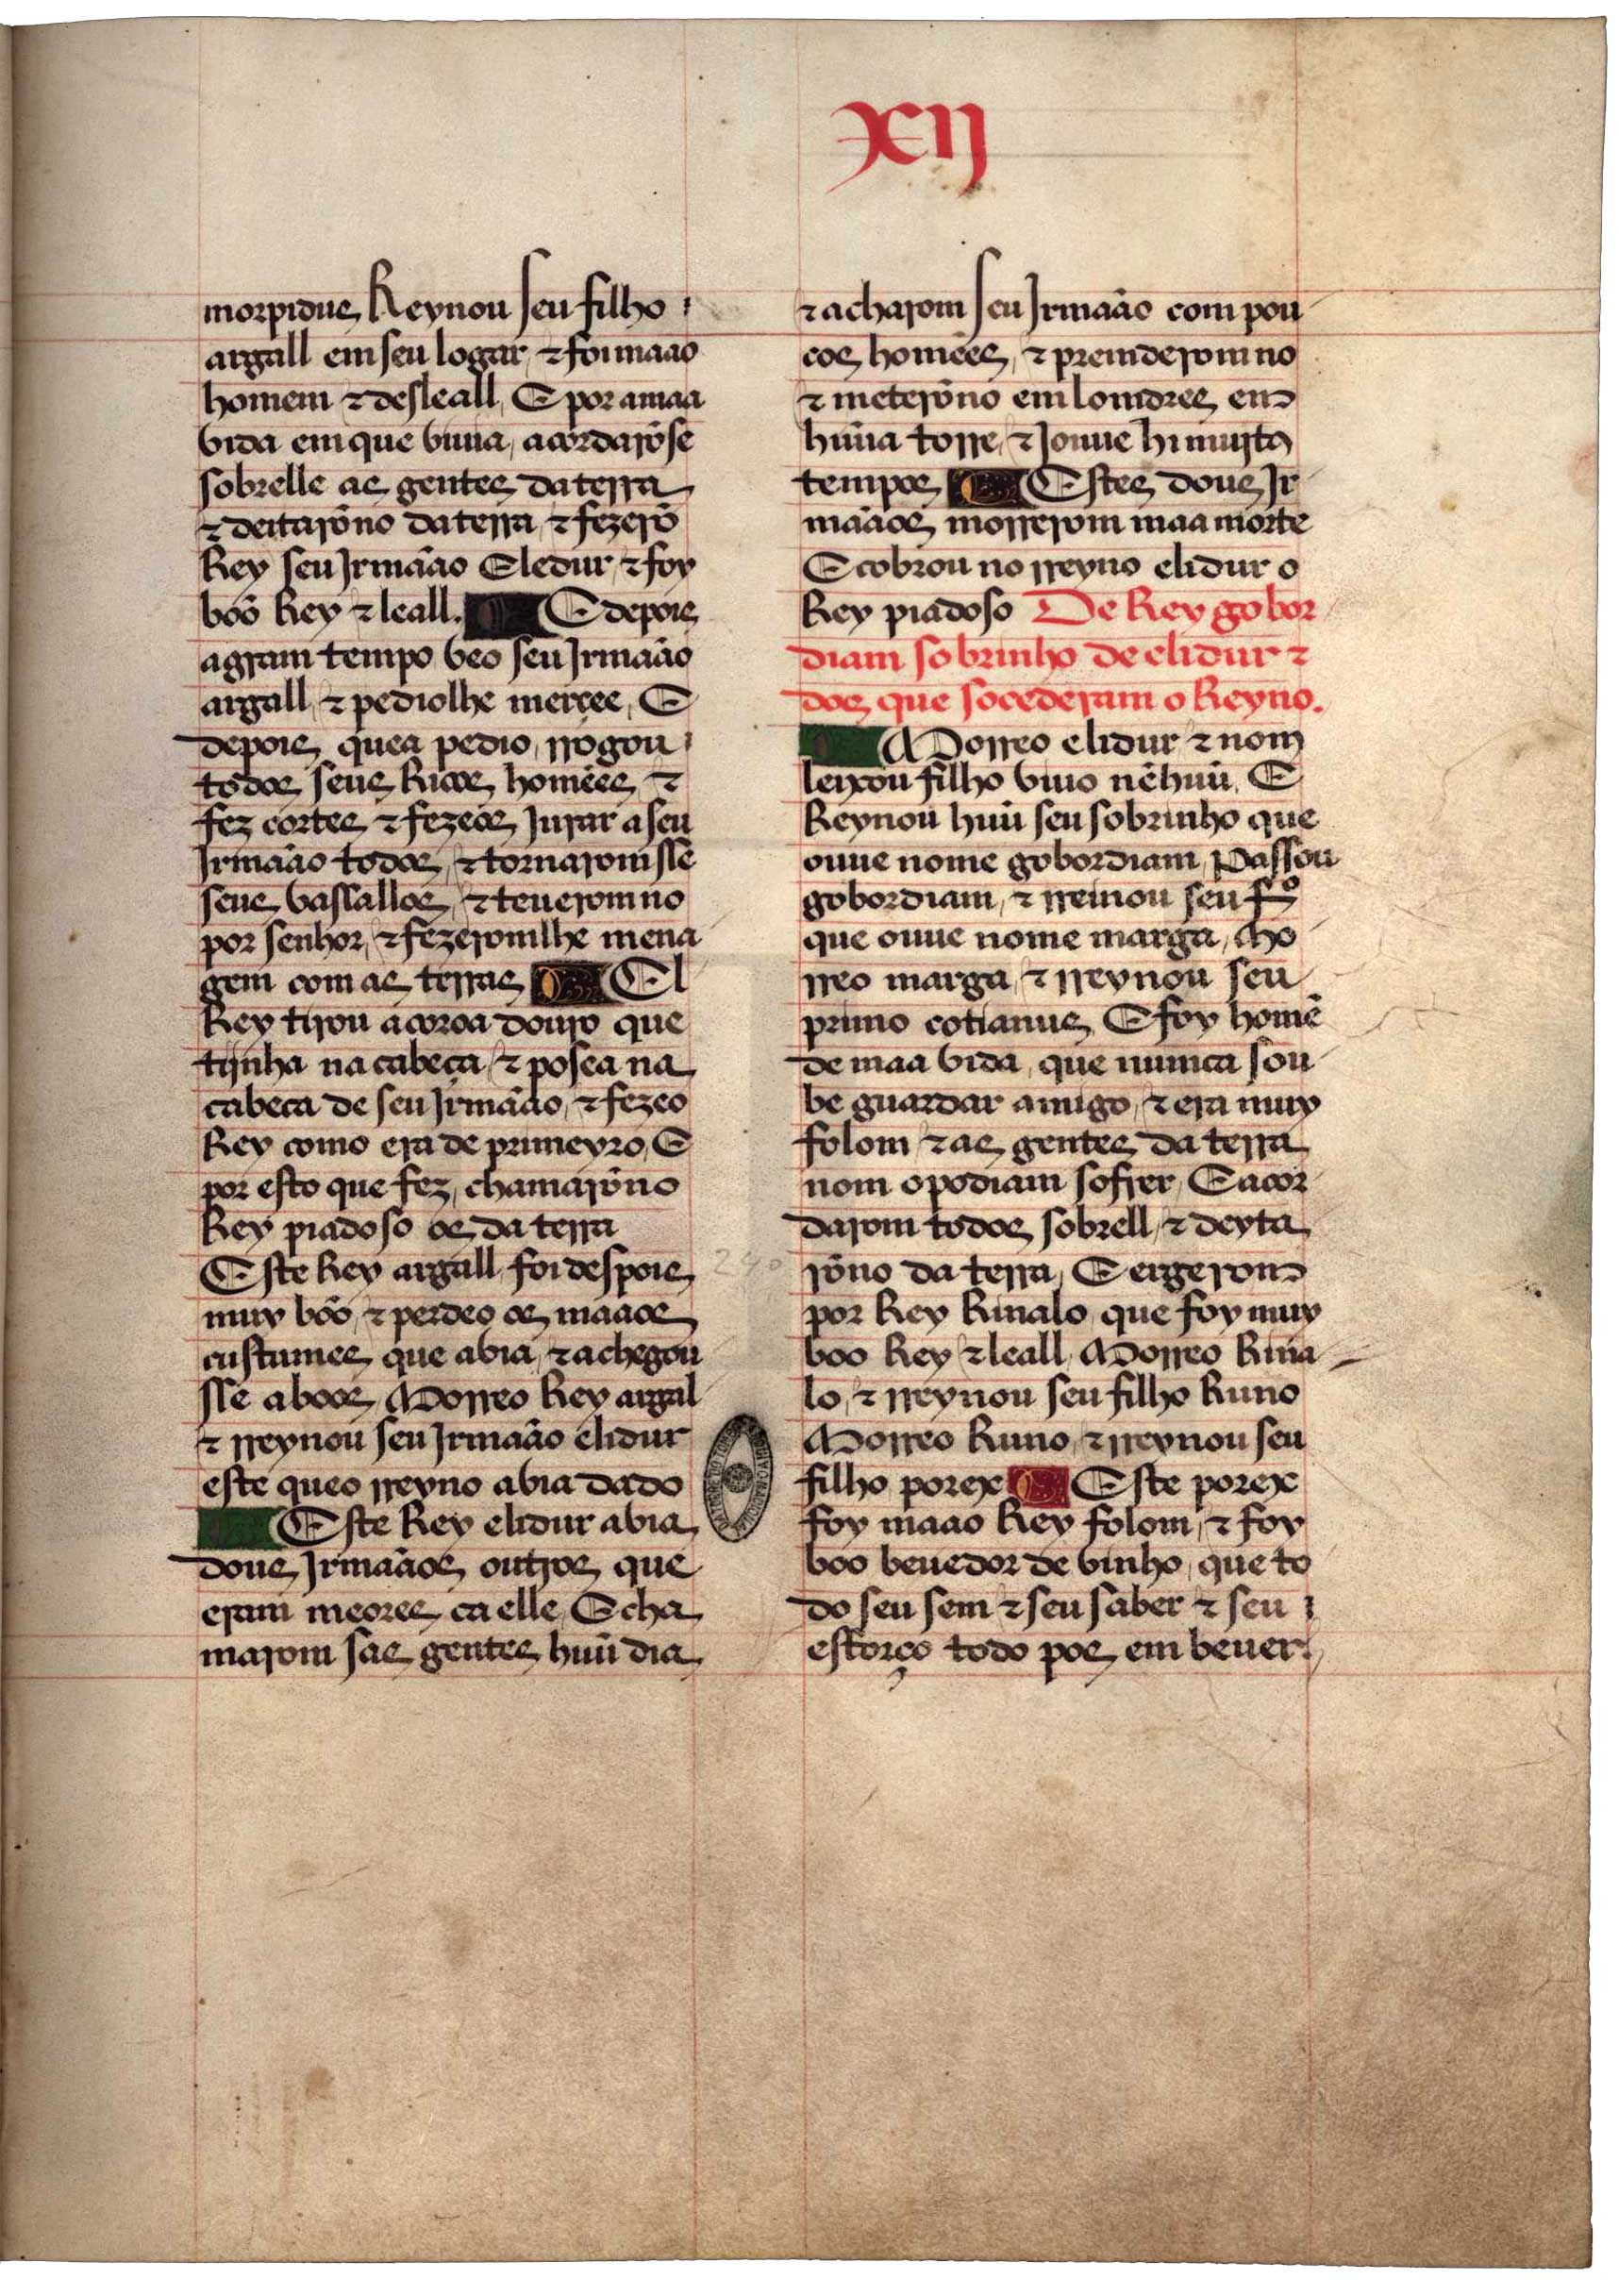 XII
morpidus Reynou seu filho
argall em seu logar, ⁊ foi maao
homem ⁊ desleall, E por a maa
vida em que viuia, acordarõse
sobrelle as gentes da terra
⁊ deitarõno da terra, ⁊ fezerõ
Rey seu Jrmaão Eledur, ⁊ foy
boõ Rey ⁊ leall. E depois
a gram tempo veo seu Jrmaão
argall, ⁊ pediolhe merçee, E
depois que a pedio, rrogou
todos seus Ricos homẽes, ⁊
fez cortes ⁊ fezeos Jurar a seu
Jrmaão todos, ⁊ tornaromsse
seus vassallos, ⁊ teueromno
por senhor, ⁊ fezeromlhe mena
gem com as terras El
Rey tirou a coroa douro que
tijnha na cabeça, ⁊ posea na
cabeça de seu Jrmaão, ⁊ fezeo
Rey como era de primeyro, E
por esto que fez, chamarõno
Rey piadoso os da terra
Este Rey argall foi despois
muy boõ, ⁊ perdeo os maaos
custumes que abia, ⁊ achegou
sse a boos, Morreo Rey argal
⁊ rreynou seu Jrmaão elidur
este que o rreyno abia dado
Este Rey elidur abia
dous Jrmaãos outros que
eram meores ca elle, E cha
marom sas gentes huũ dia
⁊ acharom seu Jrmaão com pou
cos homẽes, ⁊ premderomno
⁊ meterõno em lomdres em
huũa torre, ⁊ Jouue hi muyto
tempos Estes dous Jr
maãos morrerom maa morte
E cobrou no rreyno elidur o
Rey piadoso De Rey gobor
diam sobrinho de elidur ⁊
dos que socederam o Reyno.
Morreo elidur ⁊ nom
leixou filho viuo nẽhuũ, E
Reynou huũ seu sobrinho que
ouue nome gobordiam, Passou
gobordiam, ⁊ rreinou seu fº
que ouue nome marga, Mo
rreo marga, ⁊ rreynou seu
primo cotianus, E foy homẽ
de maa vida, que numca sou
be guardar amigo, ⁊ era muy
folom ⁊ as gentes da terra
nom o podiam sofrer, E acor
darom todos sobrell, ⁊ deyta
rõno da terra, E ergerom
por Rey Riualo, que foy muy
boo Rey ⁊ leall, Morreo Riua
lo, ⁊ rreynou seu filho Runo
Morreo Runo, ⁊ rreynou seu
filho porex Este porex
foy maao Rey folom, ⁊ foy
boo beuedor de vinho, que to
do seu sem ⁊ seu saber ⁊ seu
esforço todo pos em beuer.